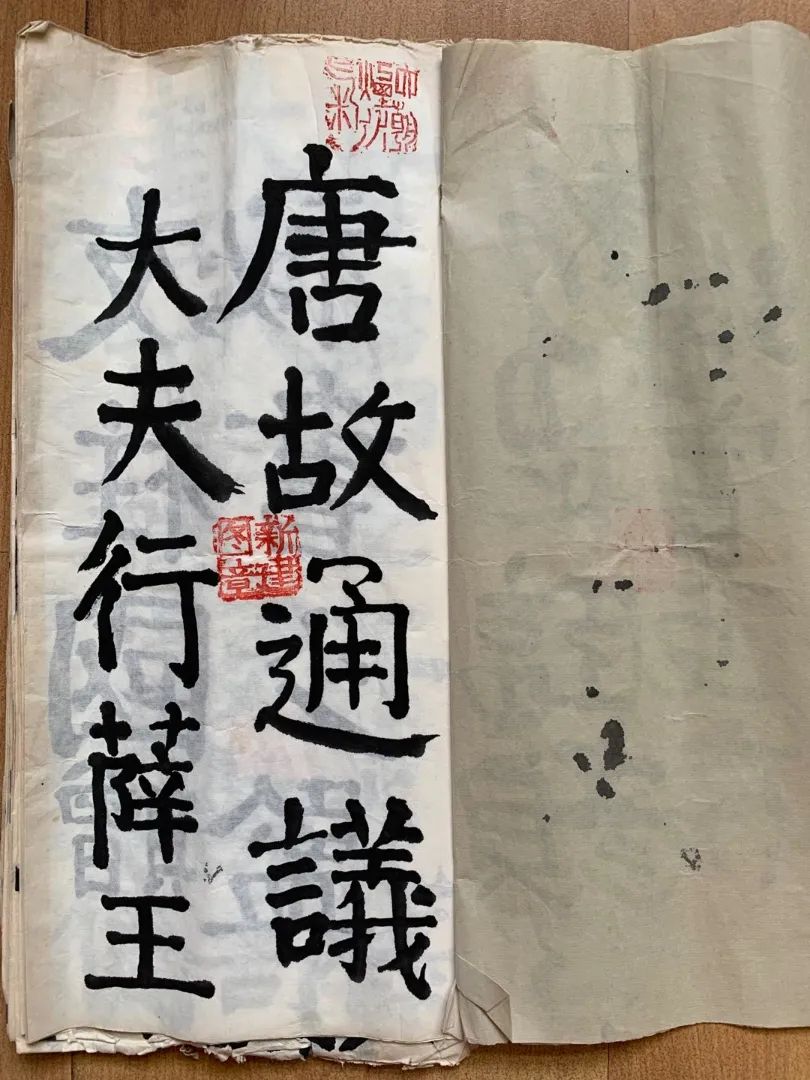 唐故通議
大夫行薛王
新建
图章